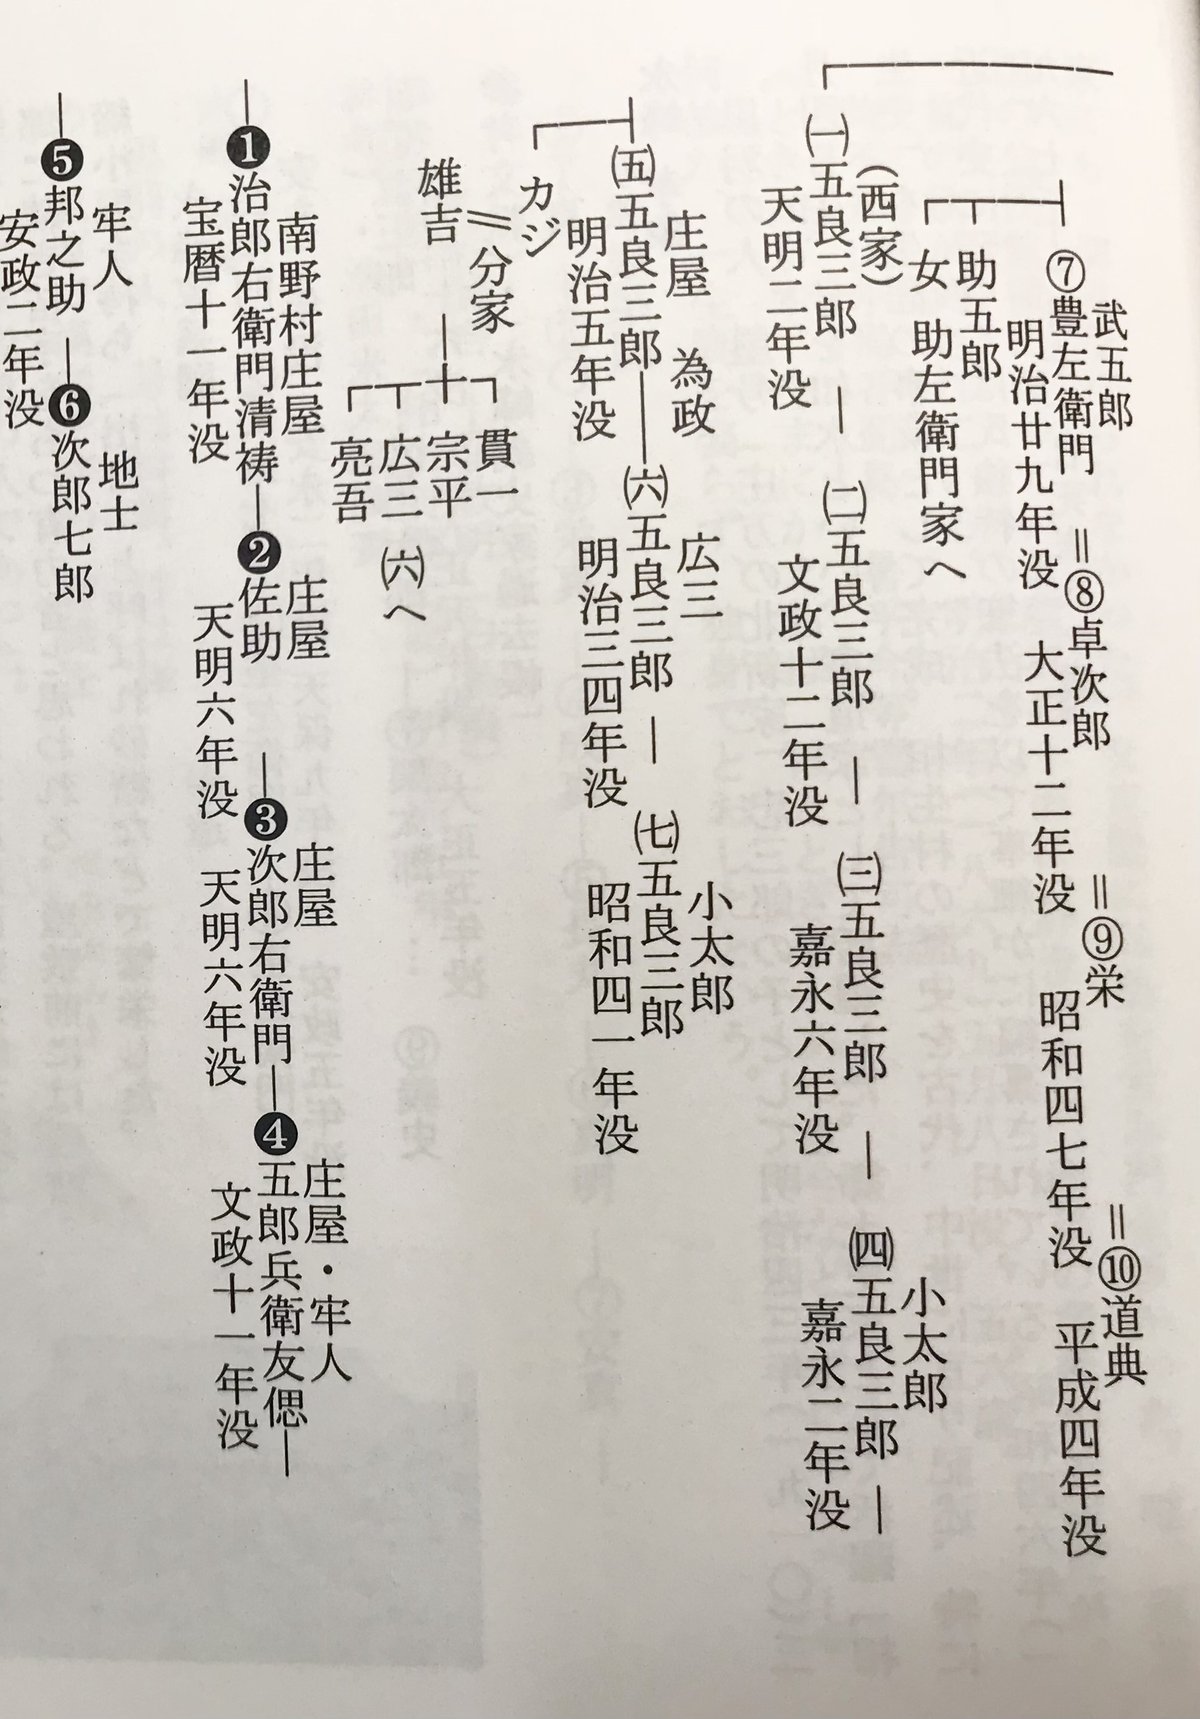 武五郎
⑦豊左衛門 ＝⑧卓次郎 ＝⑨栄 ＝⑩道典
明治廿九年没 大正十二年没 昭和四七年没 平成四年没
助五郎
女 助左衛門家へ
(西家)
小太郎
㈠五良三郎 ― ㈡五良三郎 ― ㈢五良三郎 ― ㈣五良三郎 ―
天明二年没 文政十二年没 嘉永六年没 嘉永二年没
庄屋 為政 広三 小太郎
㈤五良三郎 ― ㈥五良三郎 ― ㈦五良三郎
明治五年没 明治三四年没 昭和四一年没
カジ
＝分家
雄吉
貫一
宗平
広三 ㈥へ
亮吾
南野村庄屋 庄屋 庄屋 庄屋・牢人
❶治郎右衛門清祷 ― ❷佐助 ― ❸次郎右衛門 ― ❹五郎兵衛友偲 ―
宝暦十一年没 天明六年没 天明六年没 文政十一年没
牢人 地士
❺邦之助 ― ❻次郎七郎
安政二年没